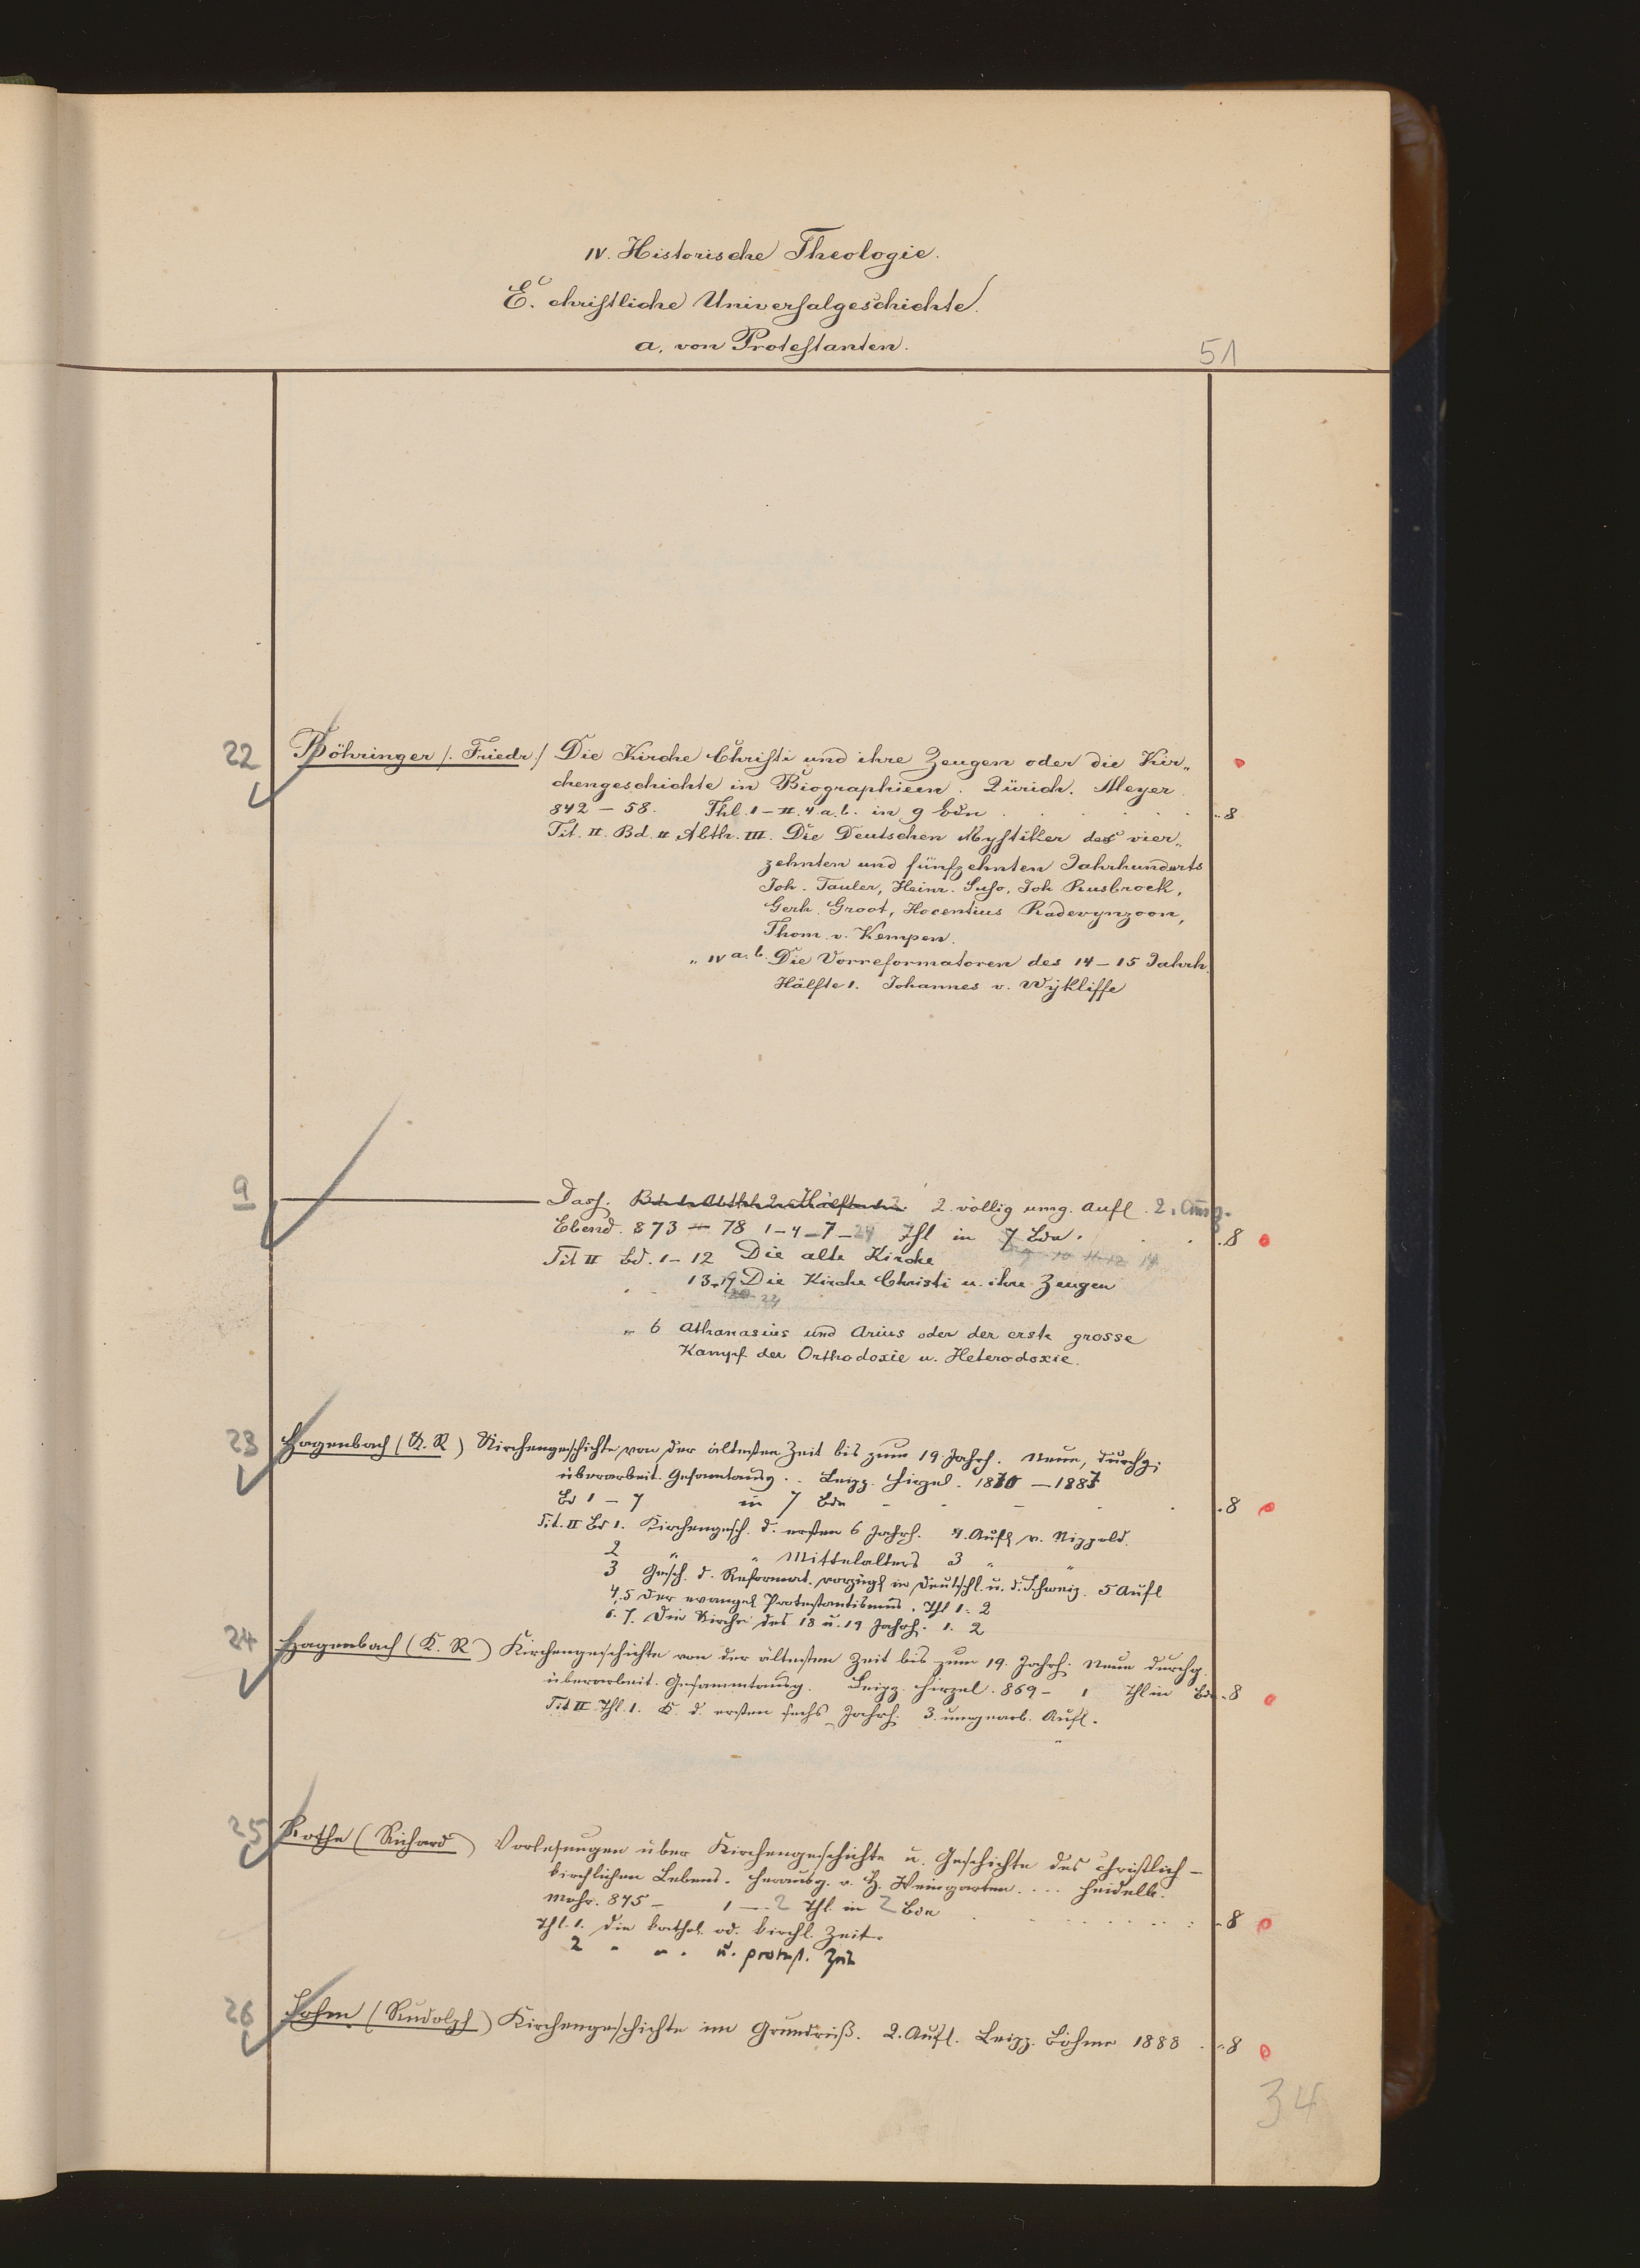 IV. Historische Theologie.
E. christliche Universalgeschichte.
a. von Protestanten.
51
22 Böhringer /. Friedr./ Die Kirche Christi und ihre Zeugen oder die Kir„
chengeschichte in Biographieen. Zürich. Meyer.
842 – 58. Thl. I – II. 4. a. b. in 9 Bdn . . . . . „ 8
Tit. II. Bd. II Abth. III. Die Deutschen Mystiker des vier„
zehnten und fünfzehnten Jahrhunderts
Joh. Tauler, Heinr. Suso, Joh Rusbrock,
Gerh. Groot, Flocentius Radevynzoon,
Thom. v. Kempen.
„ IV a. b. Die Vorreformatoren des 14 – 15 Jahrh.
Hälfte 1. Johannes v. Wykliffe
9 Dass. 2. völlig umg. Aufl. 2. Ausg.
Ebend. 873 – 78 1 – 4 – 7 – 24 Thl in 7 Bdn. . . . 8
Tit II Bd. 1 – 12 Die alte Kirche
13–19 Die Kirche Christi u. ihre Zeugen
„ 6 Athanasius und Arius oder der erste grosse
Kampf der Orthodoxie u. Heterodoxie.
23 Hagenbach (K. R) Kirchengeschichte von der ältesten Zeit bis zum 19 Jahrh. Neue, durchg.
überarbeit. Gesamtausg. . Leipz. Hirzel. 1870 – 1887
Bd 1 – 7 in 7 Bdn – – – . . 8
Tit. II Bd 1. Kirchengesch. d. ersten 6 Jahrh. 4. Aufl v. Nippold.
2 „ „ Mittelalters 3 „ „
3 Gesch. d. Reformat. vorzügl in Deutschl. u. d. Schweiz. 5 Aufl
4. 5 Der evangel Protestantismus. Thl 1. 2
6. 7. Die Kirche des 18 u. 19 Jahrh. 1. 2
24 Hagenbach (K. R) Kirchengeschichte von der ältesten Zeit bis zum 19. Jahrh. Neue durchg.
überarbeit. Gesammtausg. Leipz. Hirzel. 869 – 1 Thl in Bdn „ 8
Tit II Thl. 1. K. d. ersten sechs Jahrh. 3. umgearb. Aufl.
25 Rothe (Richard) Vorlesungen über Kirchengeschichte u. Geschichte des christlich –
kirchlichen Lebens. Herausg. v. H. Weingarten . . . . Heidelb.
Mohr. 875 – 1 – 2 Thl. in 2 Bdn . . . . . . „ 8
Thl. 1. Die kathol. od. kirchl. Zeit.
2 „ „ „ u. protest. Zeit
26 Sohm (Rudolph) Kirchengeschichte im Grundriß. 2. Aufl. Leipz. Böhme 1888 . „ 8
34